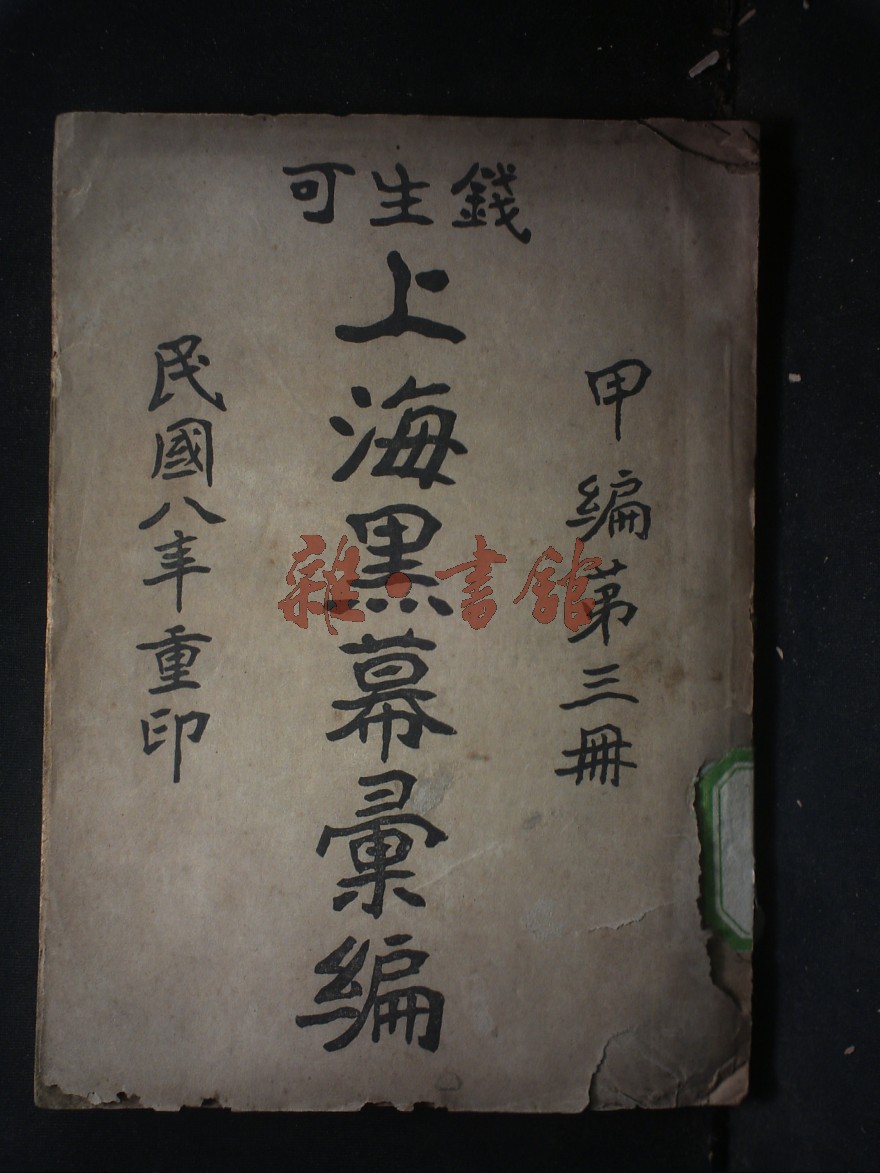 錢生可
甲編第三冊
上海黑幕彙編
民國八年重印
雜·書館